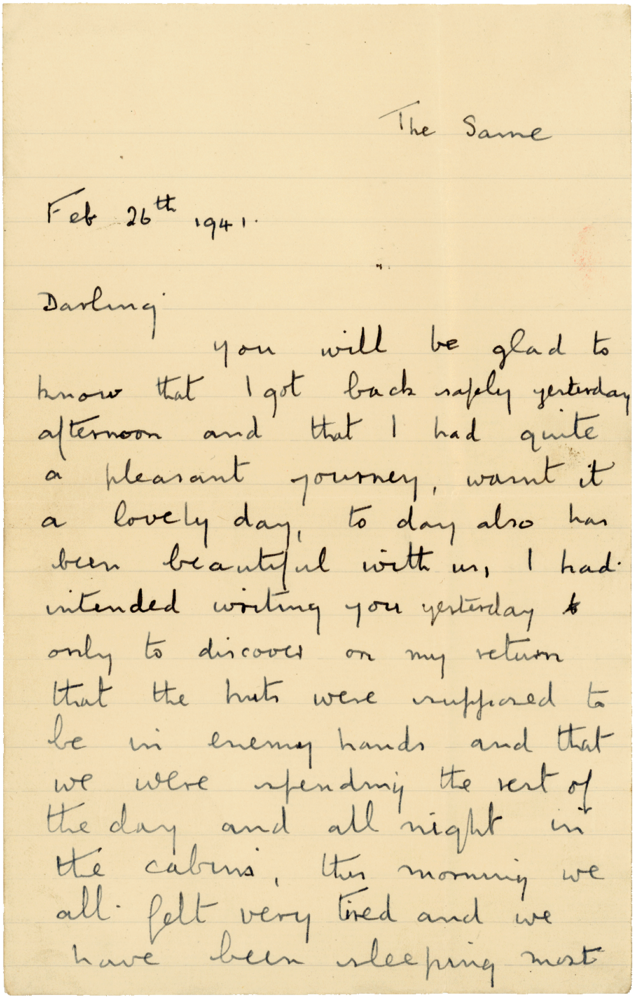 The Same
Feb 26th 1941.
Darling
you will be glad to
know that I got back safely yesterday
afternoon and that I had quite
a pleasant journey, wasnt it
a lovely day, to day also has
been beautiful with us, I had
intended writing you yesterday
only to discover on my return
that the huts were supposed to
be in enemy hands and that
we were spending the rest of
the day and all night in
the cabins, this morning we
all felt very tired and we
have been sleeping most